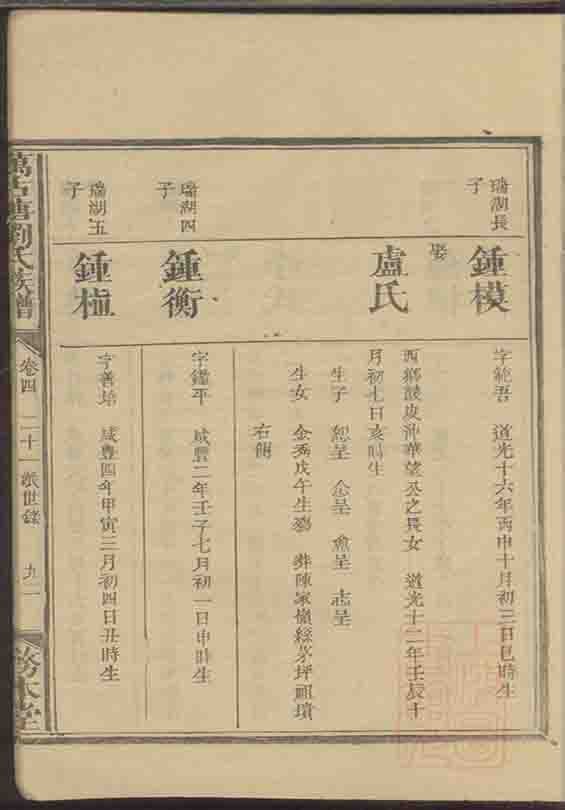 瑞湖長
子
鍾模
字範吾 道光十六年丙申十月初三日巳時生
娶
盧氏
西鄉談皮沖華望公之長女 道光十二年壬辰十
月初七日亥時生
生子 恕呈 念呈 魚呈 志呈
生女 金秀戊午生殤 葬陳家嶺綠茅坪祖墳
右側
瑞湖四
子
鍾衡
字鑑平 咸豐二年壬子七月初一日申時生
瑞湖五
子
鍾植
字善培 咸豐四年甲寅三月初四日丑時生
萬古塘劉氏族譜
卷四 二十一派世錄 九一
務本堂